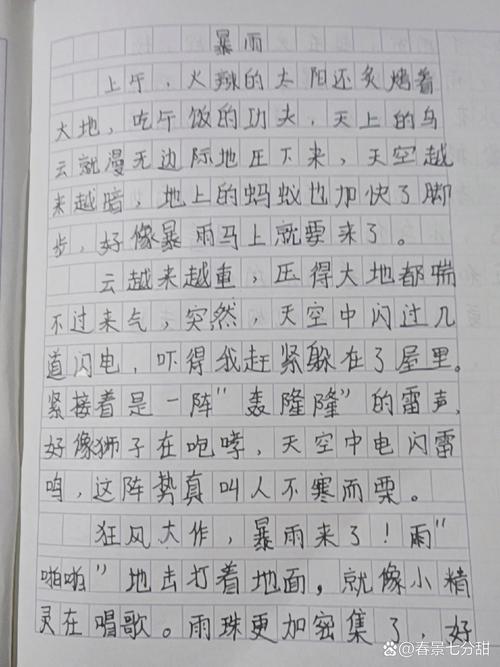 暴雨
上午，火辣的太阳还炙烤着
大地，吃午饭的功夫，天上的乌
云就漫无边际地压下来，天空越
来越暗，地上的蚂蚁也加快了脚
步，好像暴雨马上就要来了。
云越来越重，压得大地都喘
不过来气，突然，天空中闪过几
道闪电，吓得我赶紧躲在了屋里。
紧接着是一阵"轰隆隆"的雷声，
好像狮子在咆哮，天空中电闪雷
鸣，这阵势真叫人不寒而栗。
狂风大作，暴雨来了！雨"
啪啪"地击打着地面，就像小精
灵在唱歌。雨珠更加密集了，好
@春景七分甜